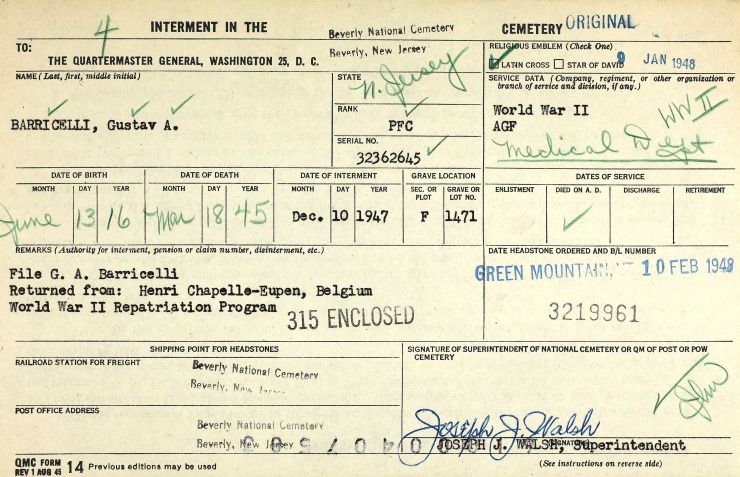 4
INTERMENT IN THE Beverly National Cemetery CEMETERY ORIGINAL
Beverly, New Jersey
TO:
THE QUARTERMASTER GENERAL, WASHINGTON 25, D. C.
RELIGIOUS EMBLEM (Check One)
LATIN CROSS STAR OF DAVID 9 JAN 1948
NAME (Last, first, middle initial)
BARRICELLI, Gustav A.
STATE
N. Jersey
RANK
PFC
SERIAL NO.
32362645
SERVICE DATA (Company, regiment, or other organization or
branch of service and division, if any.)
World War II WW II
AGF
Medical Dept
DATE OF BIRTH DATE OF DEATH DATE OF INTERMENT GRAVE LOCATION DATES OF SERVICE
MONTH DAY YEAR MONTH DAY YEAR MONTH DAY YEAR SEC. OR PLOT GRAVE OR LOT NO. ENLISTMENT DIED ON A. D. DISCHARGE RETIREMENT
June 13 16 Mar 18 45 Dec. 10 1947 F 1471
REMARKS (Authority for interment, pension or claim number, disinterment, etc.)
File G. A. Barricelli
Returned from: Henri Chapelle-Eupen, Belgium
World War II Repatriation Program
315 ENCLOSED
DATE HEADSTONE ORDERED AND B/L NUMBER
GREEN MOUNTAIN, VT 10 FEB 1948
3219961
SHIPPING POINT FOR HEADSTONES
RAILROAD STATION FOR FREIGHT
Beverly National Cemetery
Beverly, New Jersey
POST OFFICE ADDRESS
Beverly National Cemetery
Beverly, New Jersey
SIGNATURE OF SUPERINTENDENT OF NATIONAL CEMETERY OR QM OF POST OR POW
CEMETERY
Joseph J. Walsh
JOSEPH J. WALSH, Superintendent
(See instructions on reverse side)
QMC FORM
REV 1 AUG 45 14 Previous editions may be used